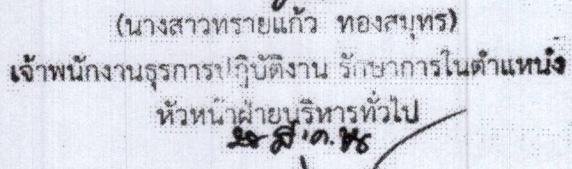 (นางสาวทรายแก้ว ทองสมุทร)
เจ้าพนักงานธุรการปฏิบัติงาน รักษาการในตำแหน่ง
หัวหน้าฝ่ายบริหารทั่วไป
ส.ค.